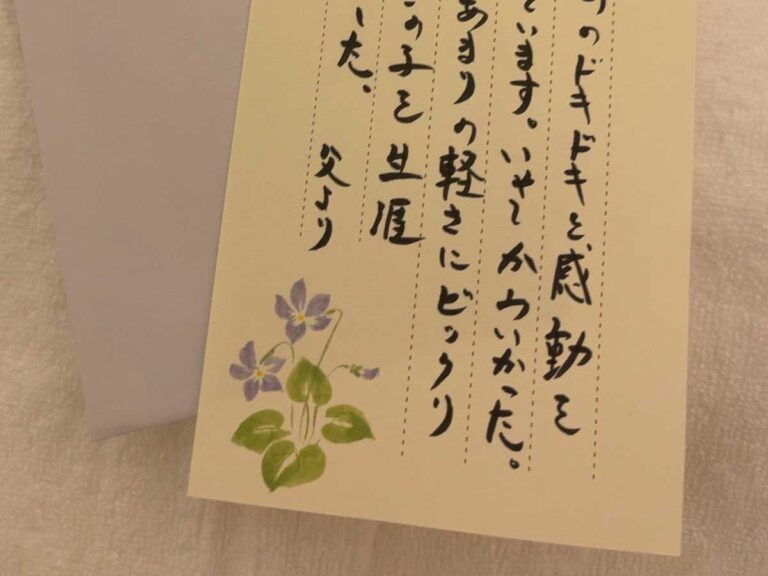 のドキドキと、感動を
ています。いやーかわいかった。
あまりの軽さにビックリ
この子を生涯
た、
父より